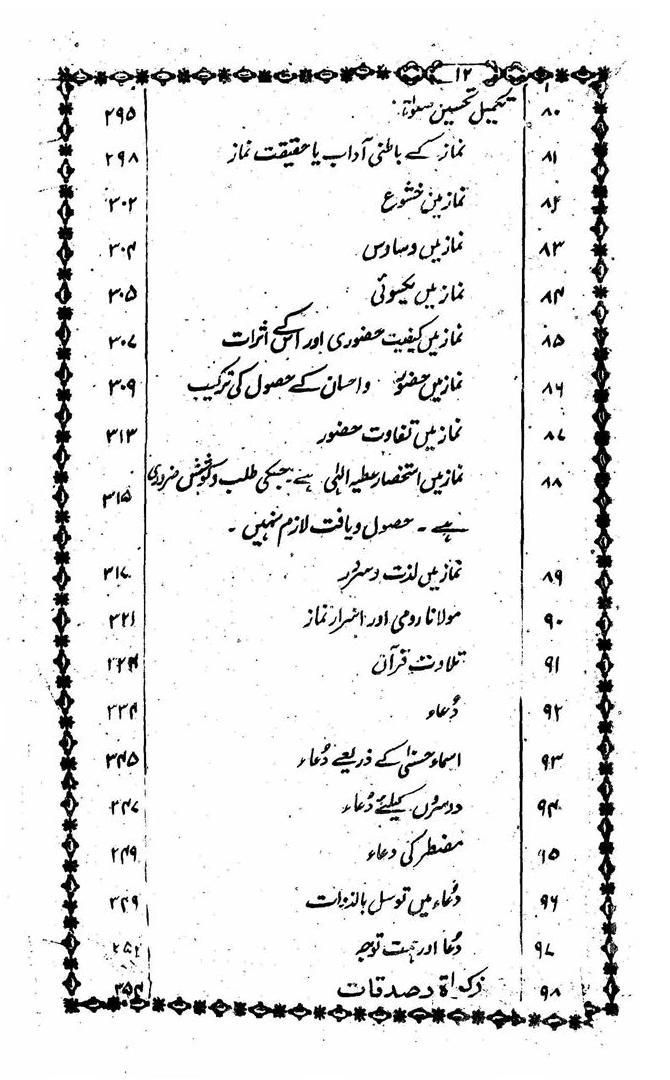 ۱۲
۸۰ تکمیل تحسین صلوٰۃ ۲۹۵
۸۱ نماز کے باطنی آداب یا حقیقت نماز ۲۹۸
۸۲ نماز میں خشوع ۳۰۲
۸۳ نماز میں وساوس ۳۰۴
۸۴ نماز میں یکسوئی ۳۰۵
۸۵ نماز میں کیفیت حضوری اور اس کے اثرات ۳۰۷
۸۶ نماز میں حضور واحسان کے حصول کی ترکیب ۳۰۹
۸۷ نماز میں تفاوت حضور ۳۱۳
۸۸ نماز میں استحضار عطیہ الٰہی ہے جسکی طلب وکوشش ضروری ۳۱۵
ہے ۔ حصول ویافت لازم نہیں ۔
۸۹ نماز میں لذت وسرور ۳۱۷
۹۰ مولانا رومی اور اسرار نماز ۳۲۱
۹۱ تلاوت قرآن
۹۲ دُعاء
۹۳ اسماء حسنیٰ کے ذریعے دُعاء ۳۴۵
۹۴ دوسروں کیلئے دُعاء ۳۴۷
۹۵ مضطر کی دعاء ۳۴۹
۹۶ دُعاء میں توسل بالذات ۳۴۹
۹۷ دُعا اور ہمت توجہ ۳۵۲
۹۸ زکواۃ و صدقات ۳۵۴